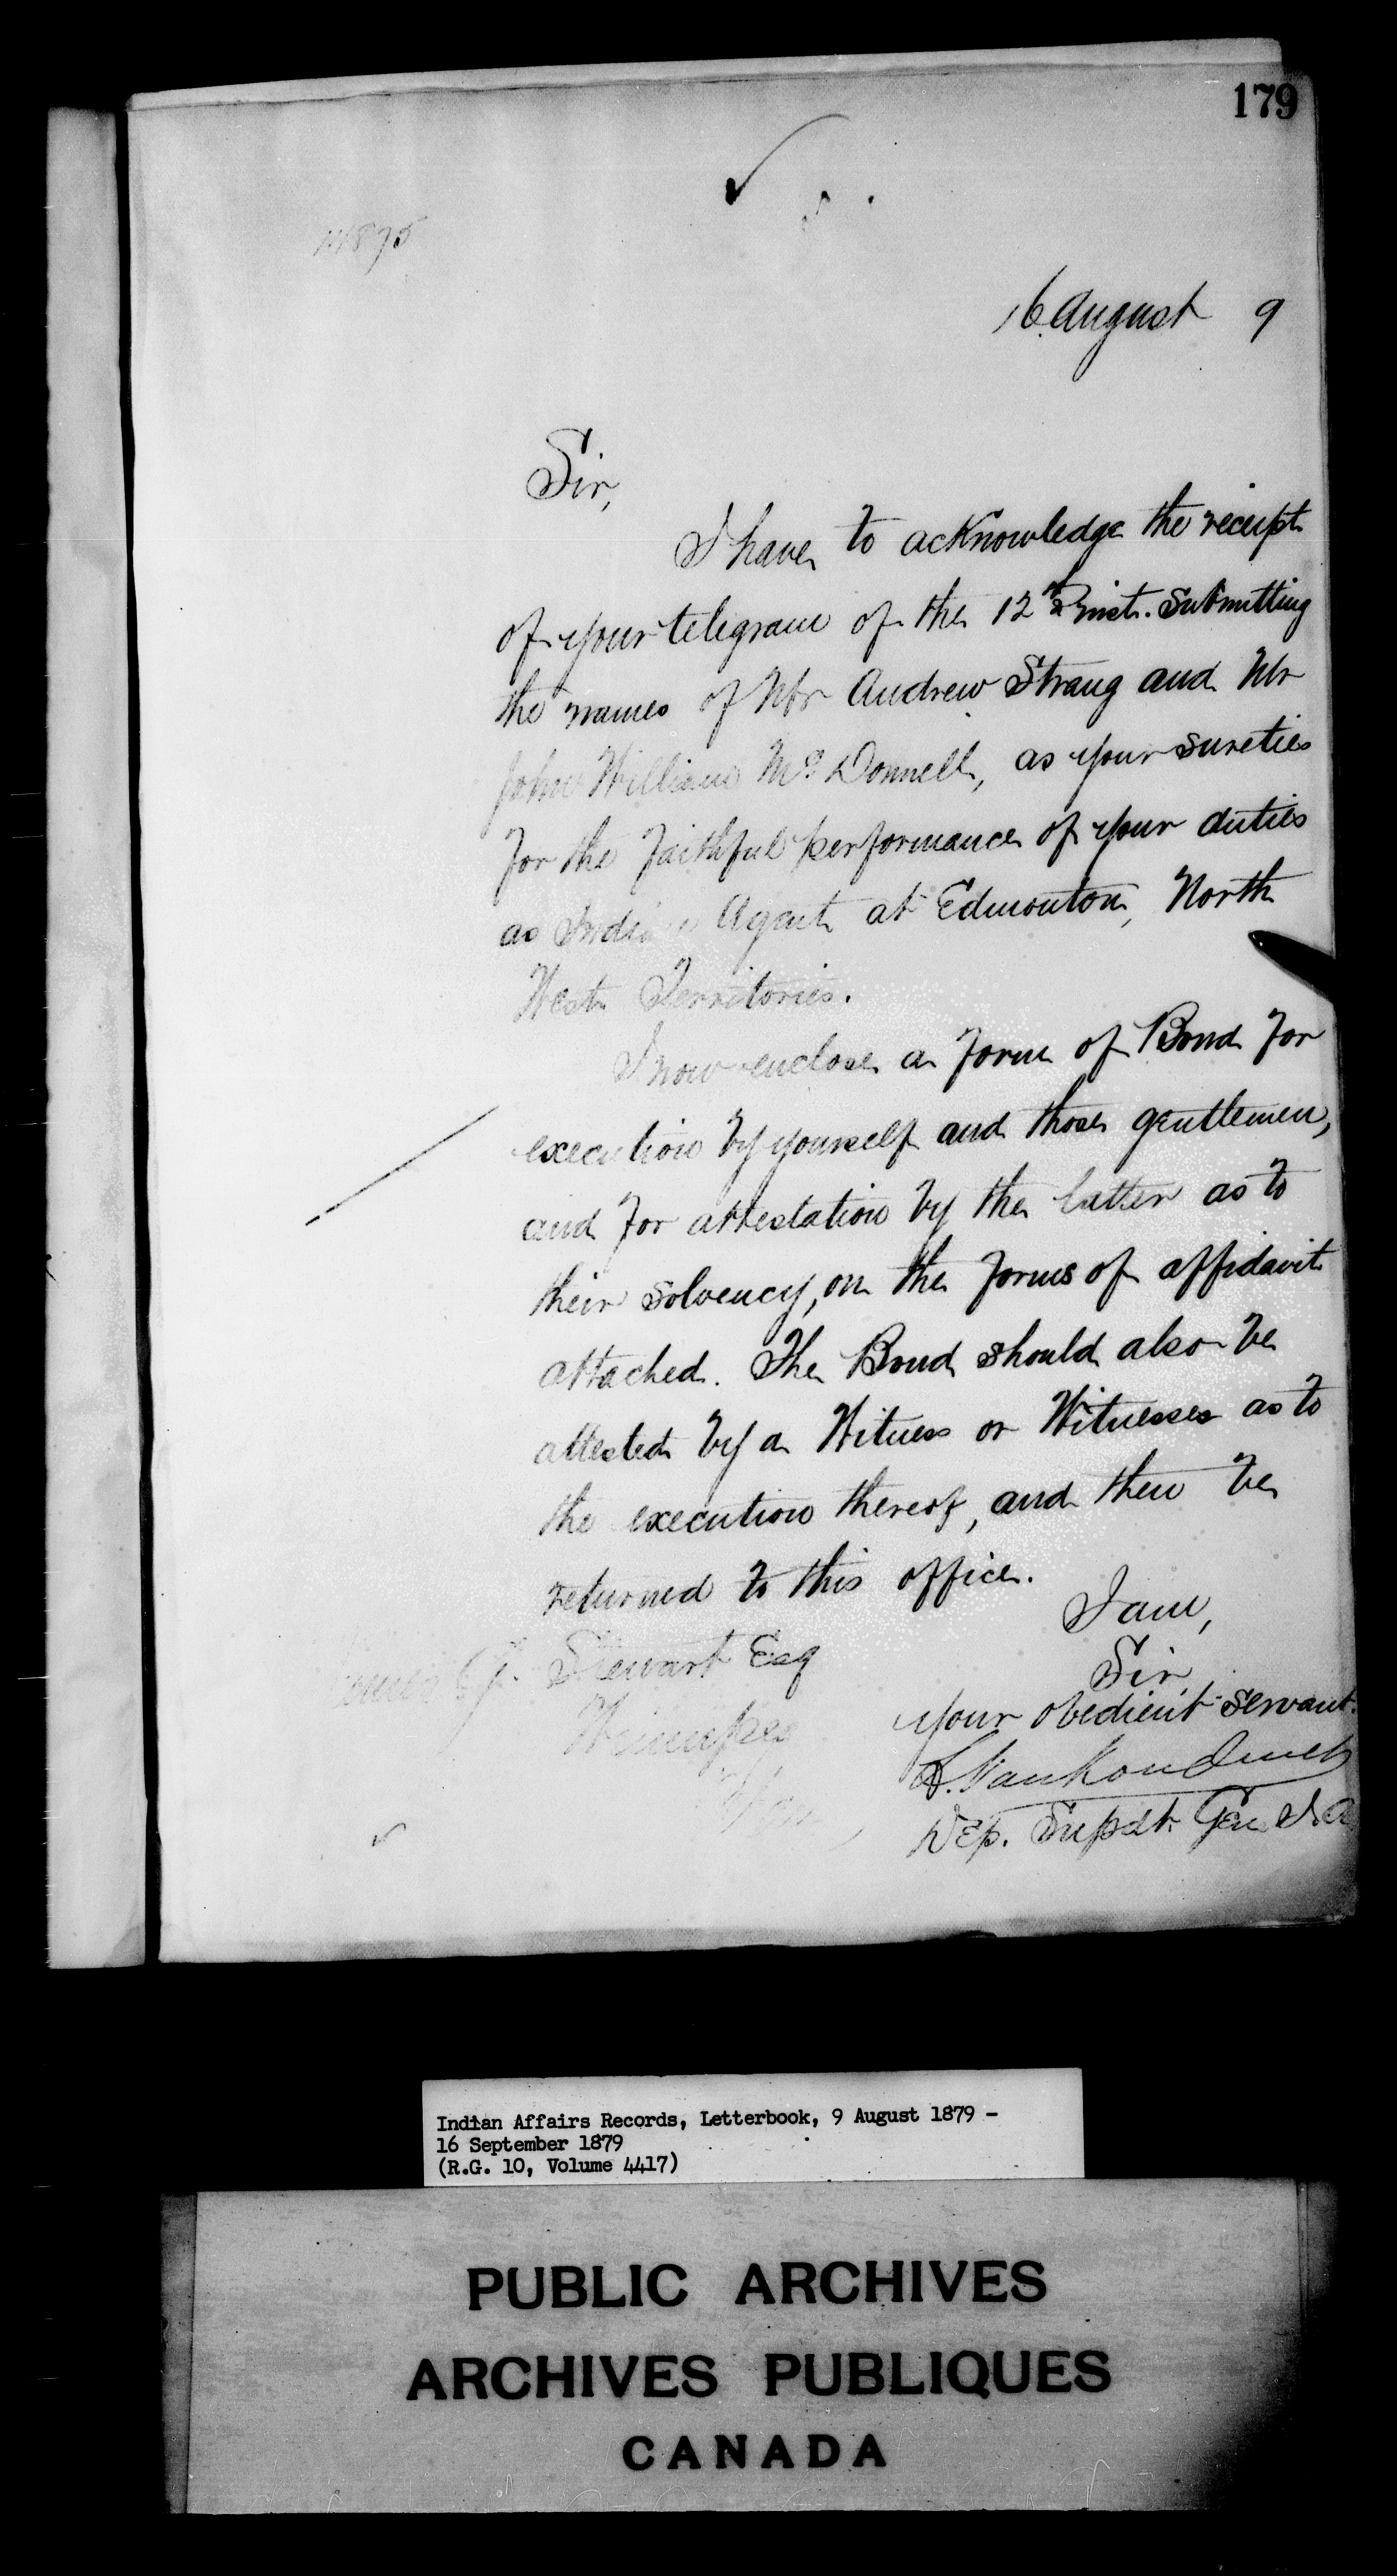 179
16 August 9
Sir,
I have to acknowledge the receipt
of your telegram of the 12th inst. submitting
the names of Mr Andrew Strang and Mr
John William McDonnell, as your sureties
for the faithful performance of your duties
as Indian Agent at Edmonton, North
West Territories.
I now enclose a form of Bond for
execution by yourself and those gentlemen,
and for attestation by the latter as to
their solvency, on the forms of affidavit
attached. The Bond should also be
attested by a Witness or Witnesses as to
the execution thereof, and then be
returned to this office.
I am,
Sir,
your obedient servant.
L. VanKoughnet
Dep. Supdt. Gen I.A
Stewart Esq
Winnipeg
Man
Indian Affairs Records, Letterbook, 9 August 1879 -
16 September 1879
(R.G. 10, Volume 4417)
PUBLIC ARCHIVES
ARCHIVES PUBLIQUES
CANADA